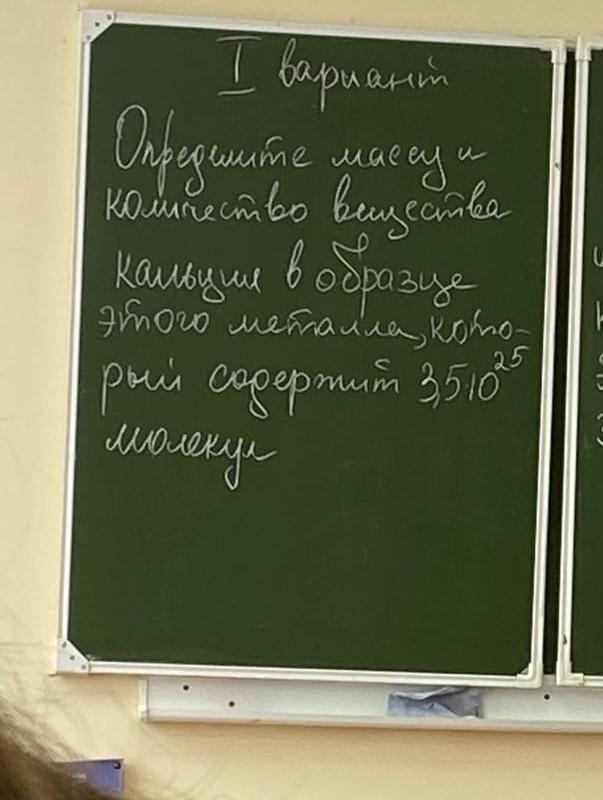 I вариант
Определите массу и
количество вещества
кальция в образце
этого металла, кото-
рый содержит 3,5·10²⁵
молекул